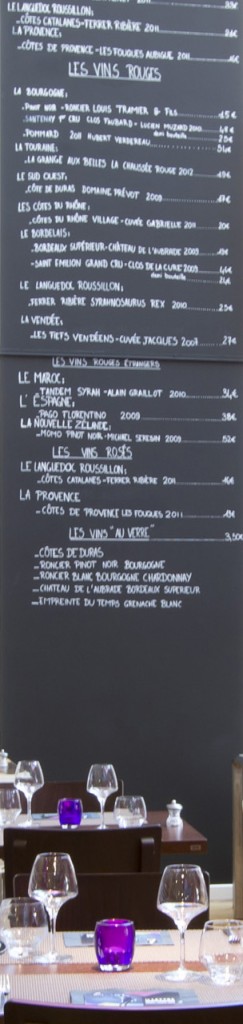 LE LANGUEDOC ROUSSILLON:
_CÔTES CATALANES-FERRER RIBIÈRE 2011
LA PROVENCE:
_CÔTES DE PROVENCE-LES FOUQUES AUBIGUE 2011
LES VINS ROUGES
LA BOURGOGNE:
_PINOT NOIR -RONCIER LOUIS TRAMIER & FILS 15€
_SANTENAY 1er CRU CLOS FAUBARD- LUCIEN MUZARD 2010
demi bouteille 25€
_POMMARD 2011 HUBERT VERDEREAU
LA TOURAINE:
_LA GRANGE AUX BELLES LA CHAUSSÉE ROUGE 2012
LE SUD OUEST:
_CÔTE DE DURAS DOMAINE PRÉVOT 2009
LES CÔTES DU RHÔNE:
_CÔTES DU RHÔNE VILLAGE -CUVÉE GABRIELLE 2011
LE BORDELAIS:
_BORDEAUX SUPÉRIEUR-CHÂTEAU DE L'AUBRADE 2009
_SAINT EMILION GRAND CRU-CLOS DE LA CURE 2009
demi bouteille
LE LANGUEDOC ROUSSILLON:
_FERRER RIBIÈRE SYRAHNOSAURUS REX 2010 25€
LA VENDÉE:
_LES FIEFS VENDÉENS-CUVÉE JACQUES 2007 27€
LES VINS ROUGES ETRANGERS
LE MAROC:
_TANDEM SYRAH -ALAIN GRAILLOT 2010 34€
L'ESPAGNE:
_PAGO FLORENTINO 2009 38€
LA NOUVELLE ZÉLANDE:
_MOMO PINOT NOIR-MICHAEL SERESIN 2009
LES VINS ROSÉS
LE LANGUEDOC ROUSSILLON:
_CÔTES CATALANES-FERRER RIBIÈRE 2011 16€
LA PROVENCE
_CÔTES DE PROVENCE LES FOUQUES 2011
LES VINS "AU VERRE" 3,50€
_CÔTES DE DURAS
_RONCIER PINOT NOIR BOURGOGNE
_RONCIER BLANC BOURGOGNE CHARDONNAY
_CHATEAU DE L'AUBRADE BORDEAUX SUPERIEUR
_EMPREINTE DU TEMPS GRENACHE BLANC